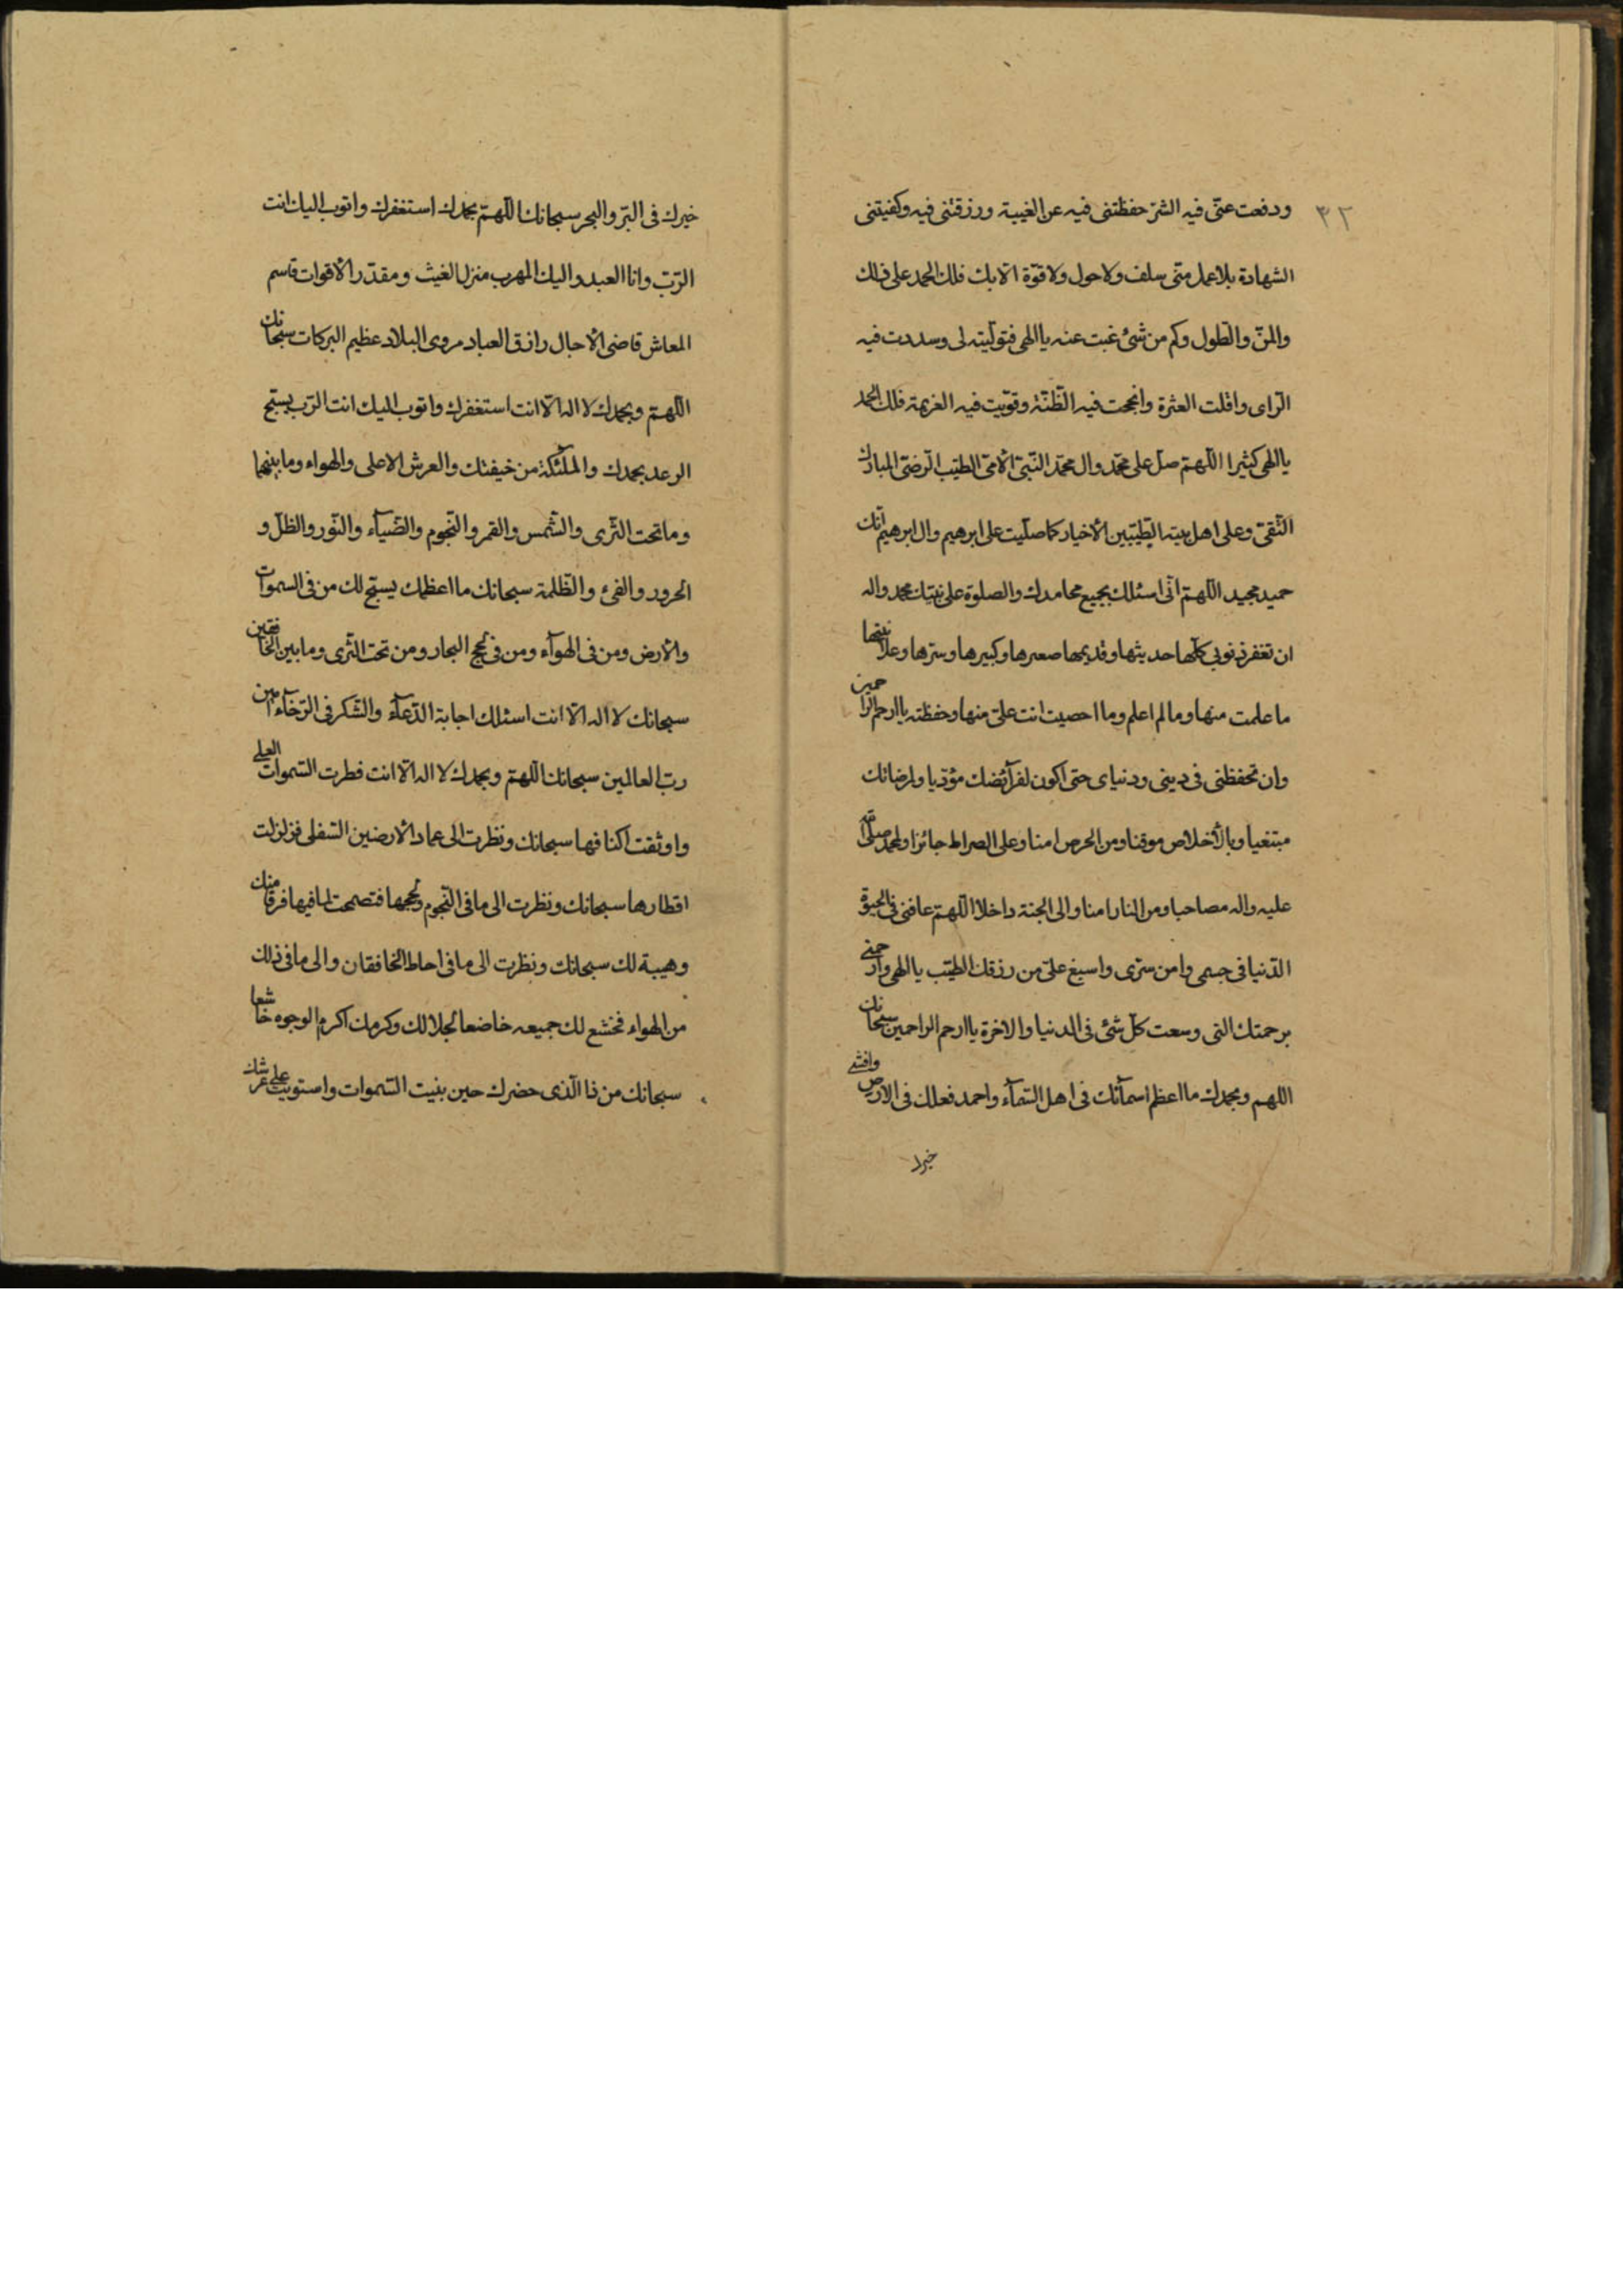 ٣٢
ودفعت عنّى فيه الشرّ حفظتنى فيه عن الغيبة ورزقتنى فيه وكفيتنى
الشهادة بلا عمل منّى سلف ولا حول ولا قوّة الّا بك فلك الحمد على ذلك
والمنّ والطّول وكم من شئ غبت عنه يا الهى فتولّيته لى وسددت فيه
الرّاى واقلت العثرة وانجحت فيه الطّلبة وقوّيت فيه العزيمة فلك الحمد
يا الهى كثيرا اللّهمّ صلّ على محمّد وال محمّد النّبىّ الامّىّ الطيّب الرّضىّ المبارك
التّقىّ وعلى اهل بيته الطّيّبين الاخيار كما صلّيت على ابرهيم وال ابرهيم انّك
حميد مجيد اللّهمّ انّى اسئلك بجميع محامدك والصلوة على نبيّك محمد واله
ان تغفر ذنوبى كلّها حديثها وقديمها صغيرها وكبيرها وسرّها وعلانيتها
ما علمت منها وما لم اعلم وما احصيت انت علىّ منها وحفظته يا ارحم الراحمين
وان تحفظنى فى دينى ودنياى حتى اكون لفرآئضك مؤدّيا ولمرضاتك
مبتغيا وبالاخلاص موقنا ومن الحرص امنا وعلى الصراط جائزا ولمحمد صلّى الله
عليه واله مصاحبا ومن النار امنا والى الجنة داخلا اللّهمّ عافنى فى الحيوة
الدّنيا فى جسمى وامن سربى واسبغ علىّ من رزقك الطيّب يا الهى وارحمنى
برحمتك التى وسعت كلّ شئ فى الدنيا والاخرة يا ارحم الراحمين سبحانك
اللهم وبحمدك ما اعظم اسمآئك فى اهل السّمآء واحمد فعلك فى الارض وافشى
خيرك
خيرك فى البّر والبحر سبحانك اللّهمّ بحمدك استغفرك واتوب اليك انت
الرّبّ وانا العبد واليك المهرب منزل الغيث ومقدّر الاقوات قاسم
المعاش قاضى الاجال رازق العباد مروى البلاد عظيم البركات سبحانك
اللّهمّ وبحمدك لا اله الّا انت استغفرك واتوب اليك انت الرّب يسبّح
الرعد بحمدك والملئكة من خيفتك والعرش الاعلى والهواء وما بينهما
وما تحت الثّرى والشّمس والقمر والنّجوم والضّيآء والنّور والظلّ و
الحرور والفئ والظّلمة سبحانك ما اعظمك يسبّح لك من فى السموات
والارض ومن فى الهوآء ومن فى لجج البحار ومن تحت الثّرى وما بين الخافقين
سبحانك لا اله الّا انت اسئلك اجابة الدّعآء والشّكر فى الرّخآء امين
ربّ العالمين سبحانك اللّهمّ وبحمدك لا اله الّا انت فطرت السّموات العلى
واوثقت اكنافها سبحانك ونظرت الى عماد الارضين السّفلى فزلزلت
اقطارها سبحانك ونظرت الى ما فى النّجوم ولججها فتصمحت لما فيها فرقا منك
وهيبة لك سبحانك ونظرت الى ما فى احاط الخافقان والى ما فى ذلك
من الهواء فخشع لك جميعه خاضعا لجلالك وكرمك اكرم الوجوه خاشعا
سبحانك من ذا الّذى حضرك حين بنيت السّموات واستويت على عرشك